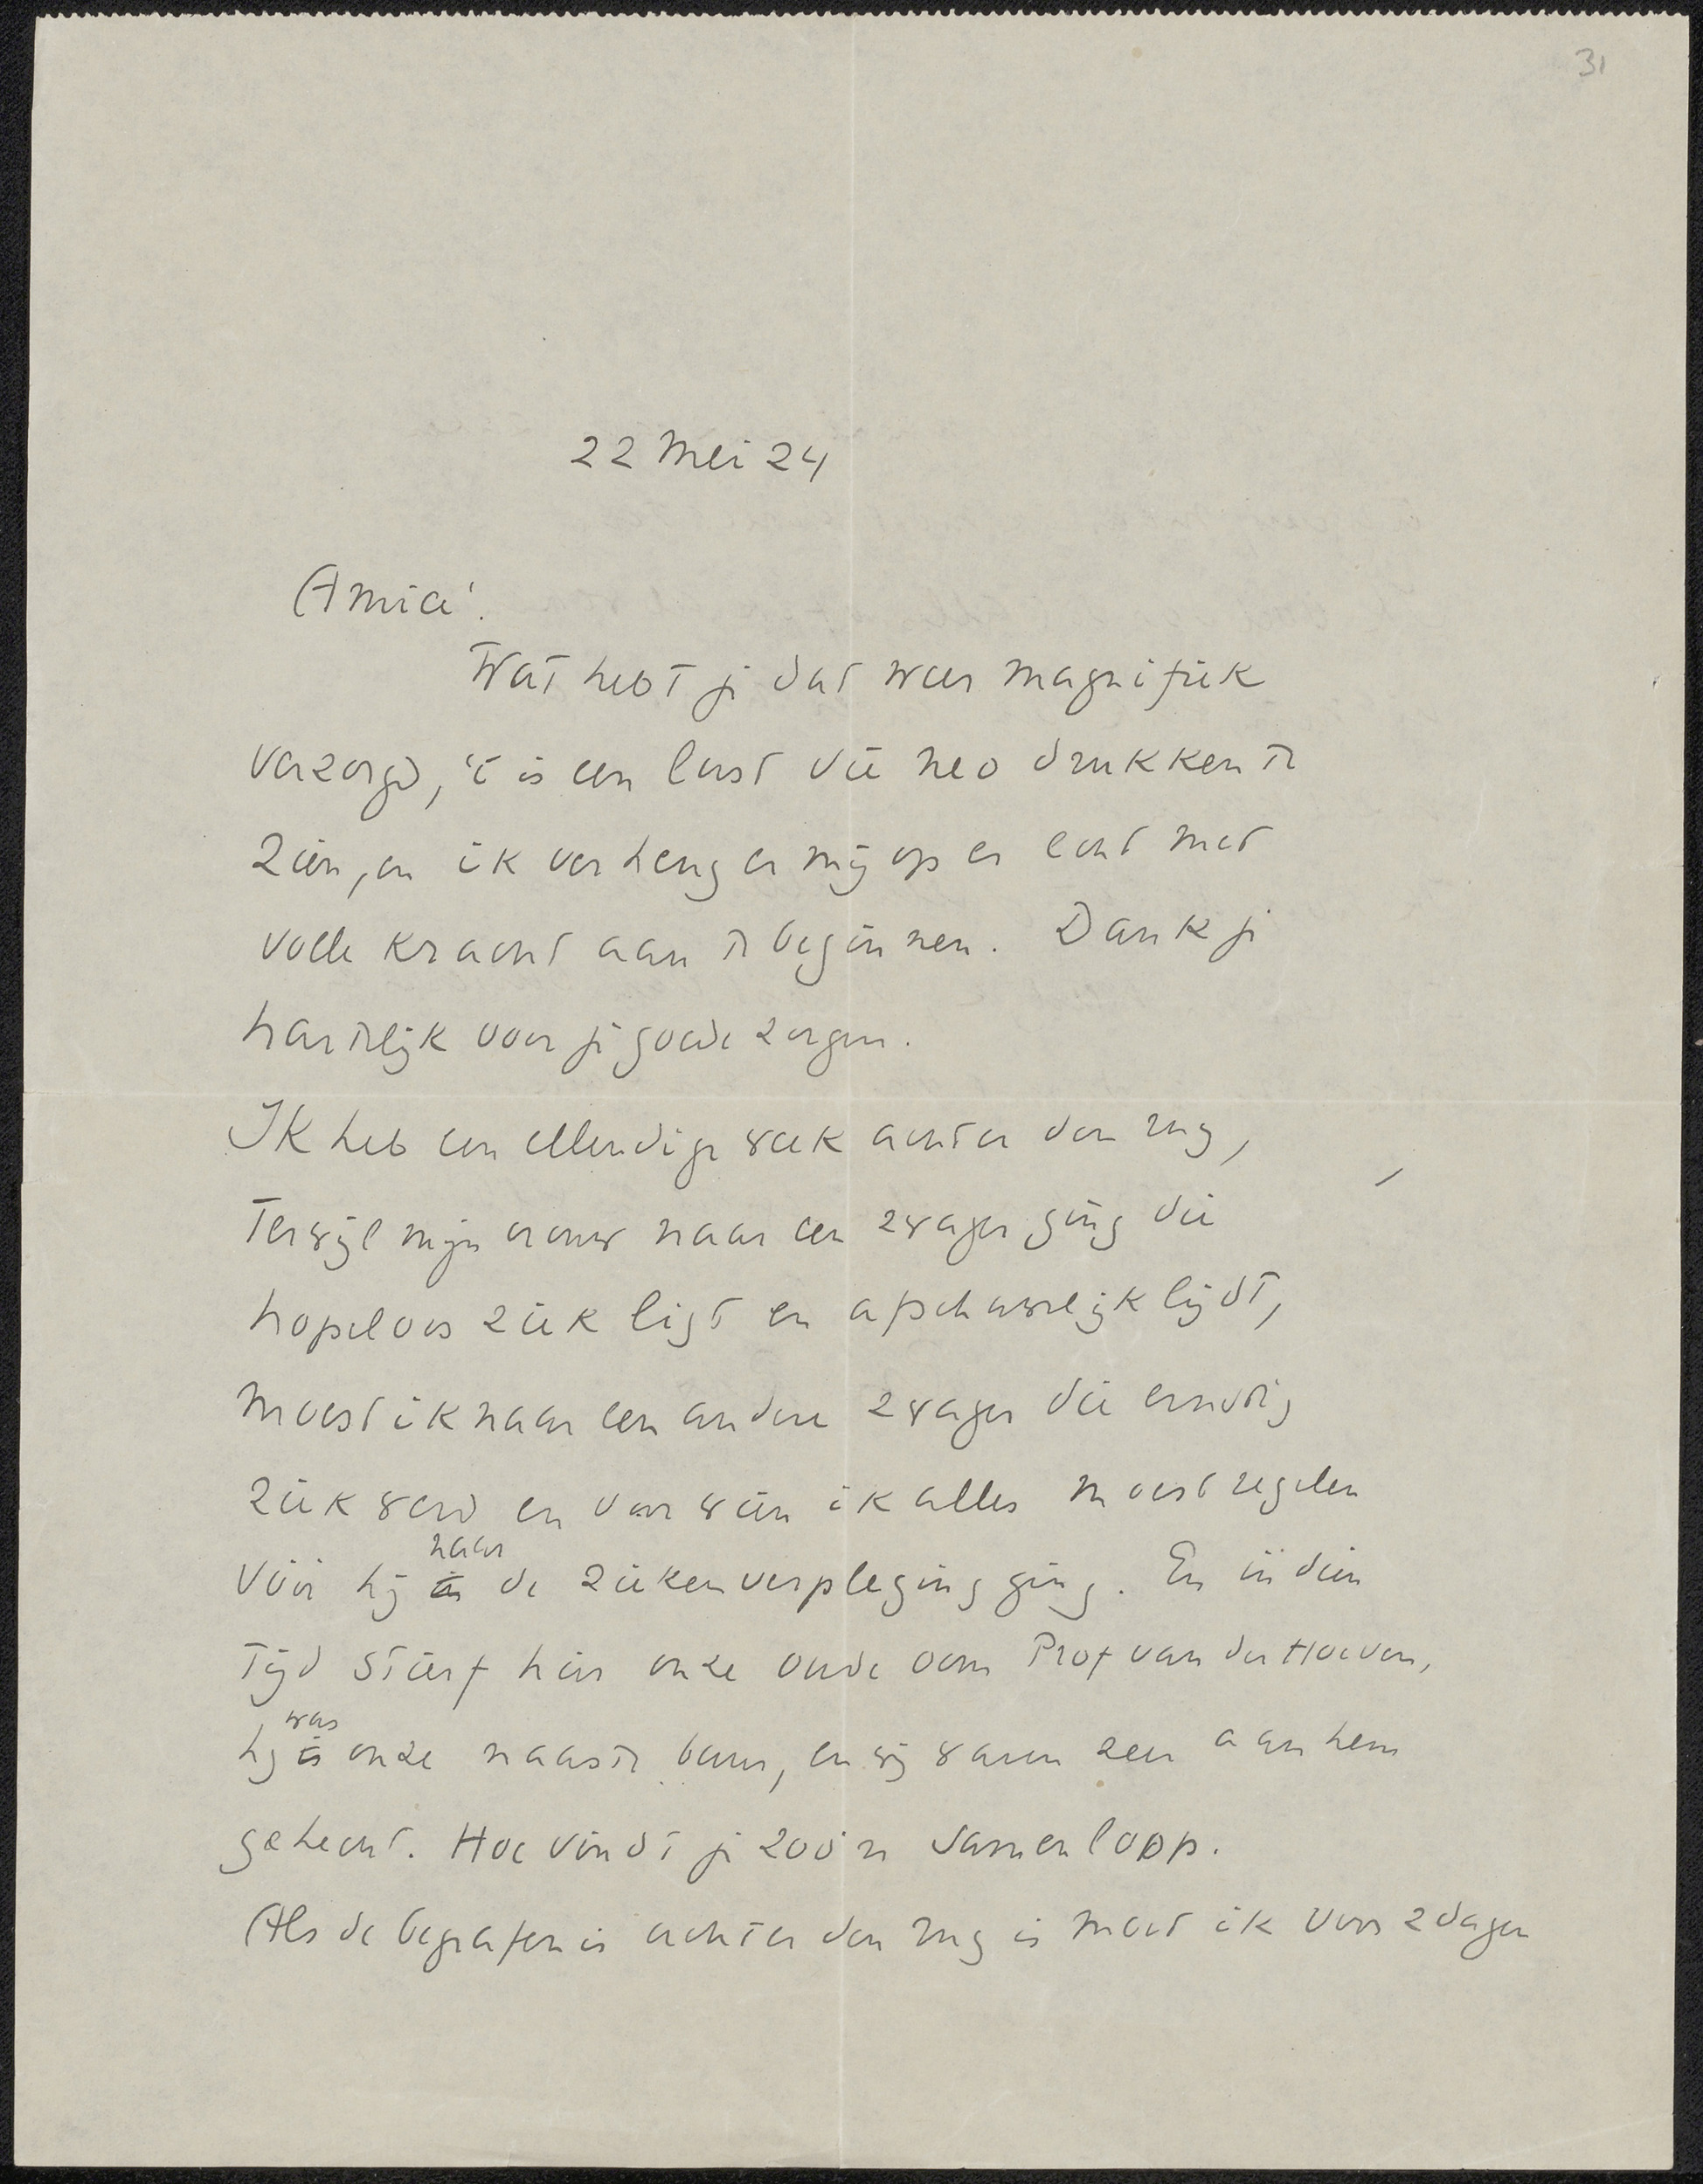 31
22 Mei 24
Amice!
Wat hebt je dat weer magnifiek
verzorgd, 't is een lust die neo drukken te
zien, en ik verheug er mij op er echt met
volle kracht aan te beginnen. Dank je
hartelijk voor je goede zorgen.
Ik heb een ellendige week achter den rug,
Terwijl mijn vrouw naar een zwager ging die
hopeloos ziek ligt en afschuwelijk lijdt,
moest ik naar een andere zwager die ernstig
ziek werd en voor wien ik alles moest regelen
naar
vóór hij in de ziekenverpleging ging. En in dien
tijd stierf hier onze oude oom Prof van der Hoeven,
was
hij is onze naaste buur, en wij waren zeer aan hem
gehecht. Hoe vindt je zoo'n samenloop.
Als de begrafenis achter den rug is moet ik voor 2 dagen